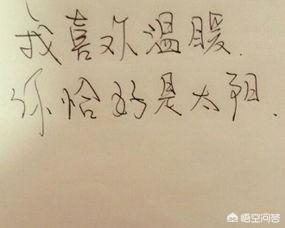 我喜欢温暖.
你恰好是太阳.
悟空问答